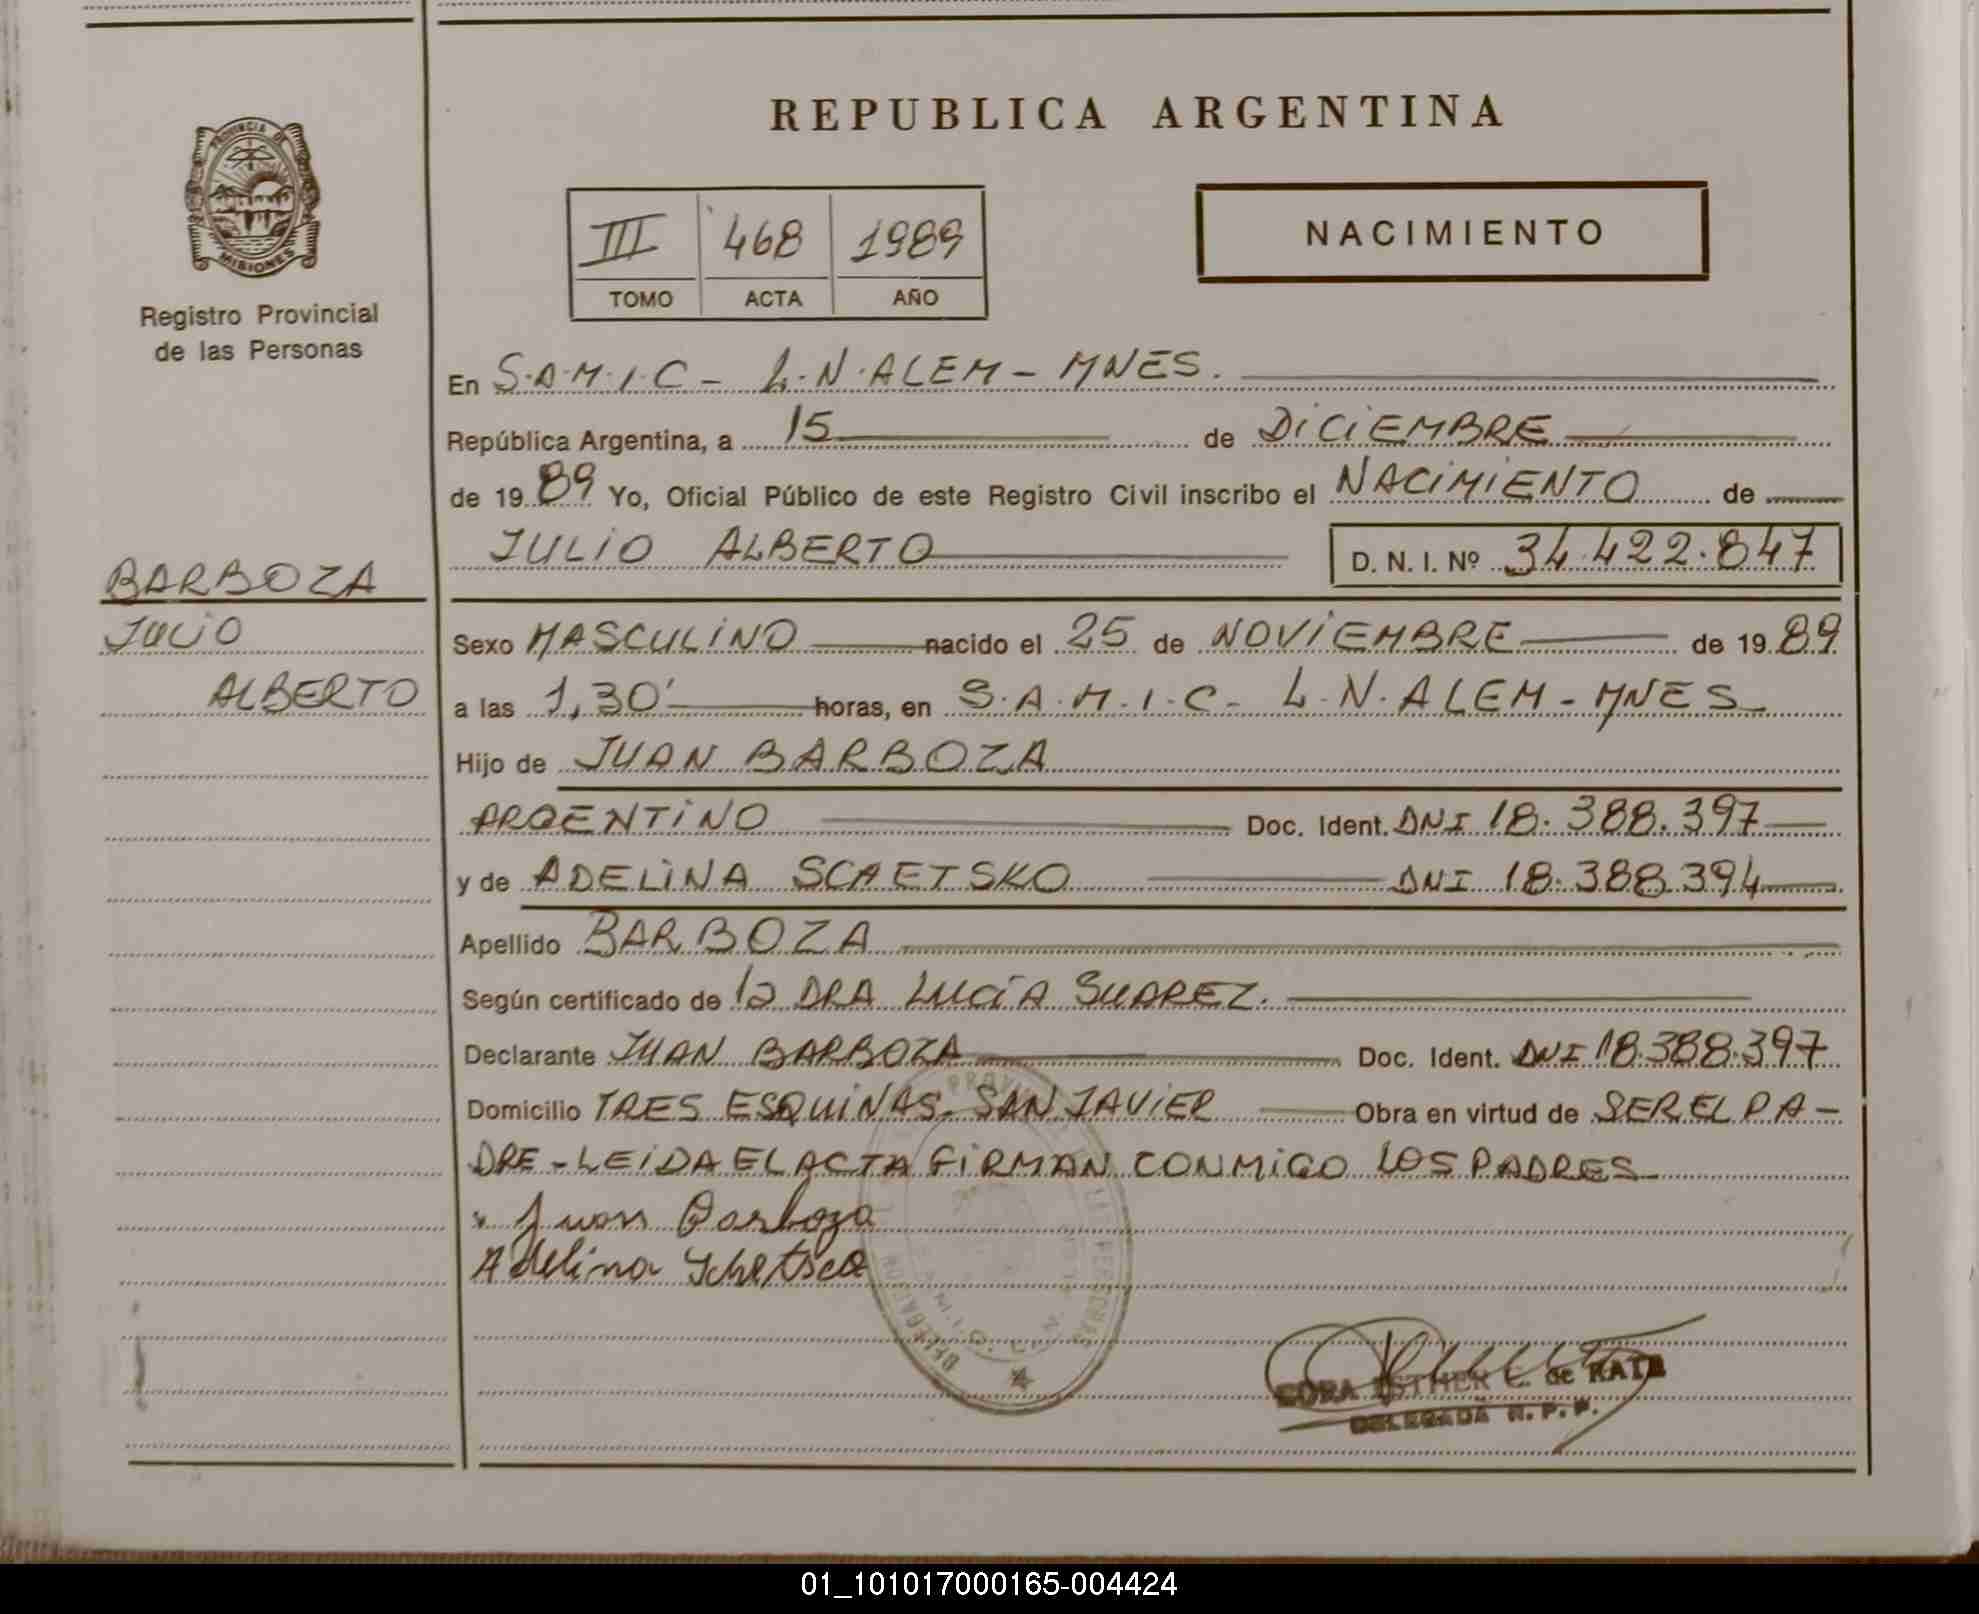 REPUBLICA ARGENTINA
PROVINCIA DE
MISIONES
Registro Provincial
de las Personas
III 468 1989
TOMO ACTA AÑO
NACIMIENTO
En S.A.M.I.C - L.N.ALEM - MNES.
República Argentina, a 15 de DICIEMBRE
de 1989 Yo, Oficial Público de este Registro Civil inscribo el NACIMIENTO de
JULIO ALBERTO D. N. I. Nº 34.422.847
BARBOZA
JULIO
ALBERTO
Sexo MASCULINO nacido el 25 de NOVIEMBRE de 1989
a las 1,30' horas, en S.A.M.I.C - L.N.ALEM - MNES
Hijo de JUAN BARBOZA
ARGENTINO Doc. Ident. DNI 18.388.397
y de ADELINA SCAETSKO DNI 18.388.394
Apellido BARBOZA
Según certificado de la DRA LUCÍA SUAREZ.
Declarante JUAN BARBOZA Doc. Ident. DNI 18.388.397
Domicilio TRES ESQUINAS - SAN JAVIER Obra en virtud de SER EL PA-
DRE - LEIDA EL ACTA FIRMAN CONMIGO LOS PADRES
Juan Barboza
Adelina Schetsco
ESTHER E. de RATE
DELEGADA R. P. P.
01_101017000165-004424